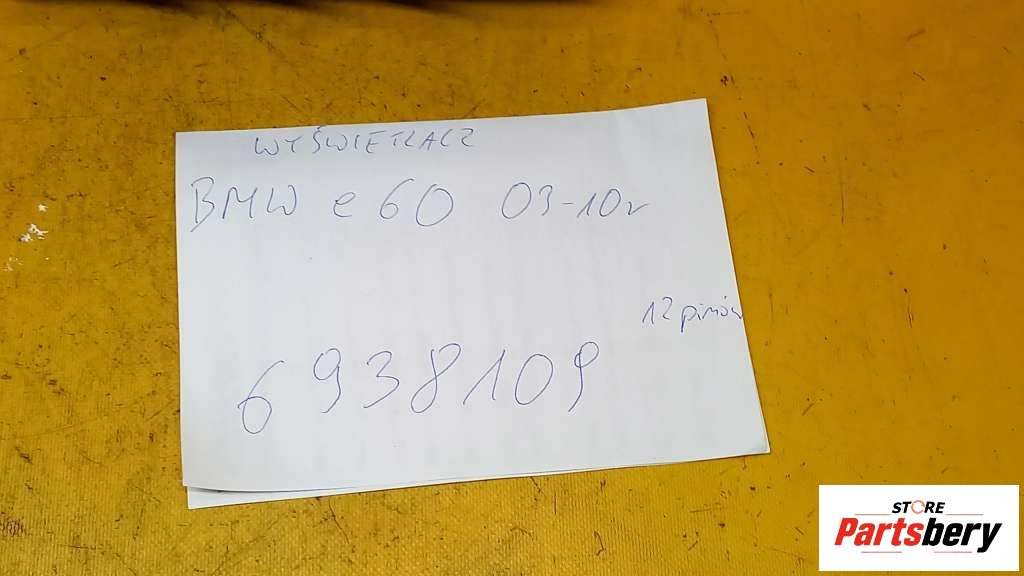 WYŚWIETLACZ
BMW e60 03-10r
12 pinów
6938109
STORE
Partsbery